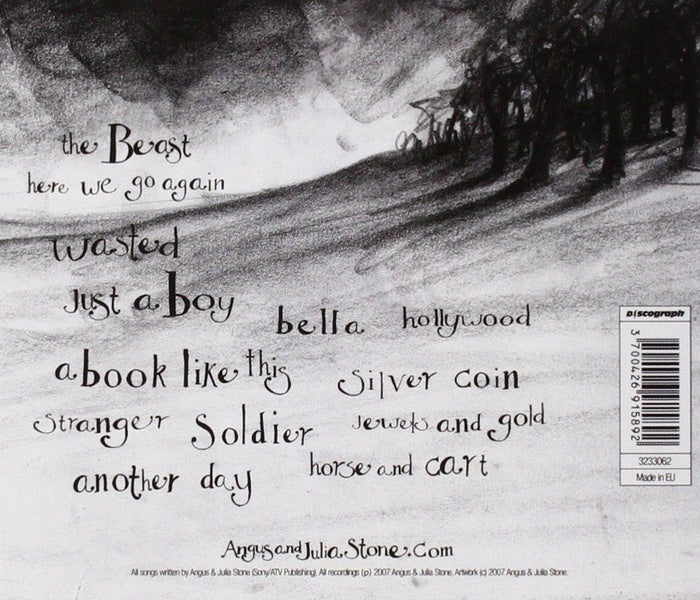 the Beast
here we go again
wasted
Just a boy
bella
hollywood
a book like this
silver coin
stranger
Soldier
jewels and gold
another day
horse and cart
Discograph
3 700426 915892
3233062
Made in EU
AngusandJuliaStone.Com
All songs written by Angus & Julia Stone (Sony/ATV Publishing). All recordings (p) 2007 Angus & Julia Stone. Artwork (c) 2007 Angus & Julia Stone.